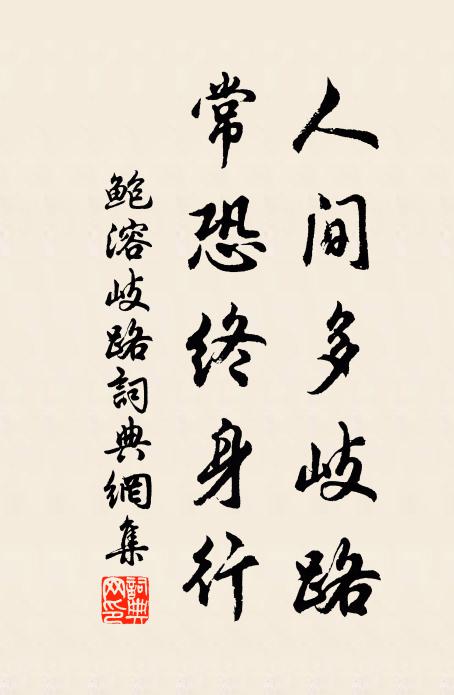 人间多岐路
常恐终身行
鲍溶岐路詞典網集
詞典网印